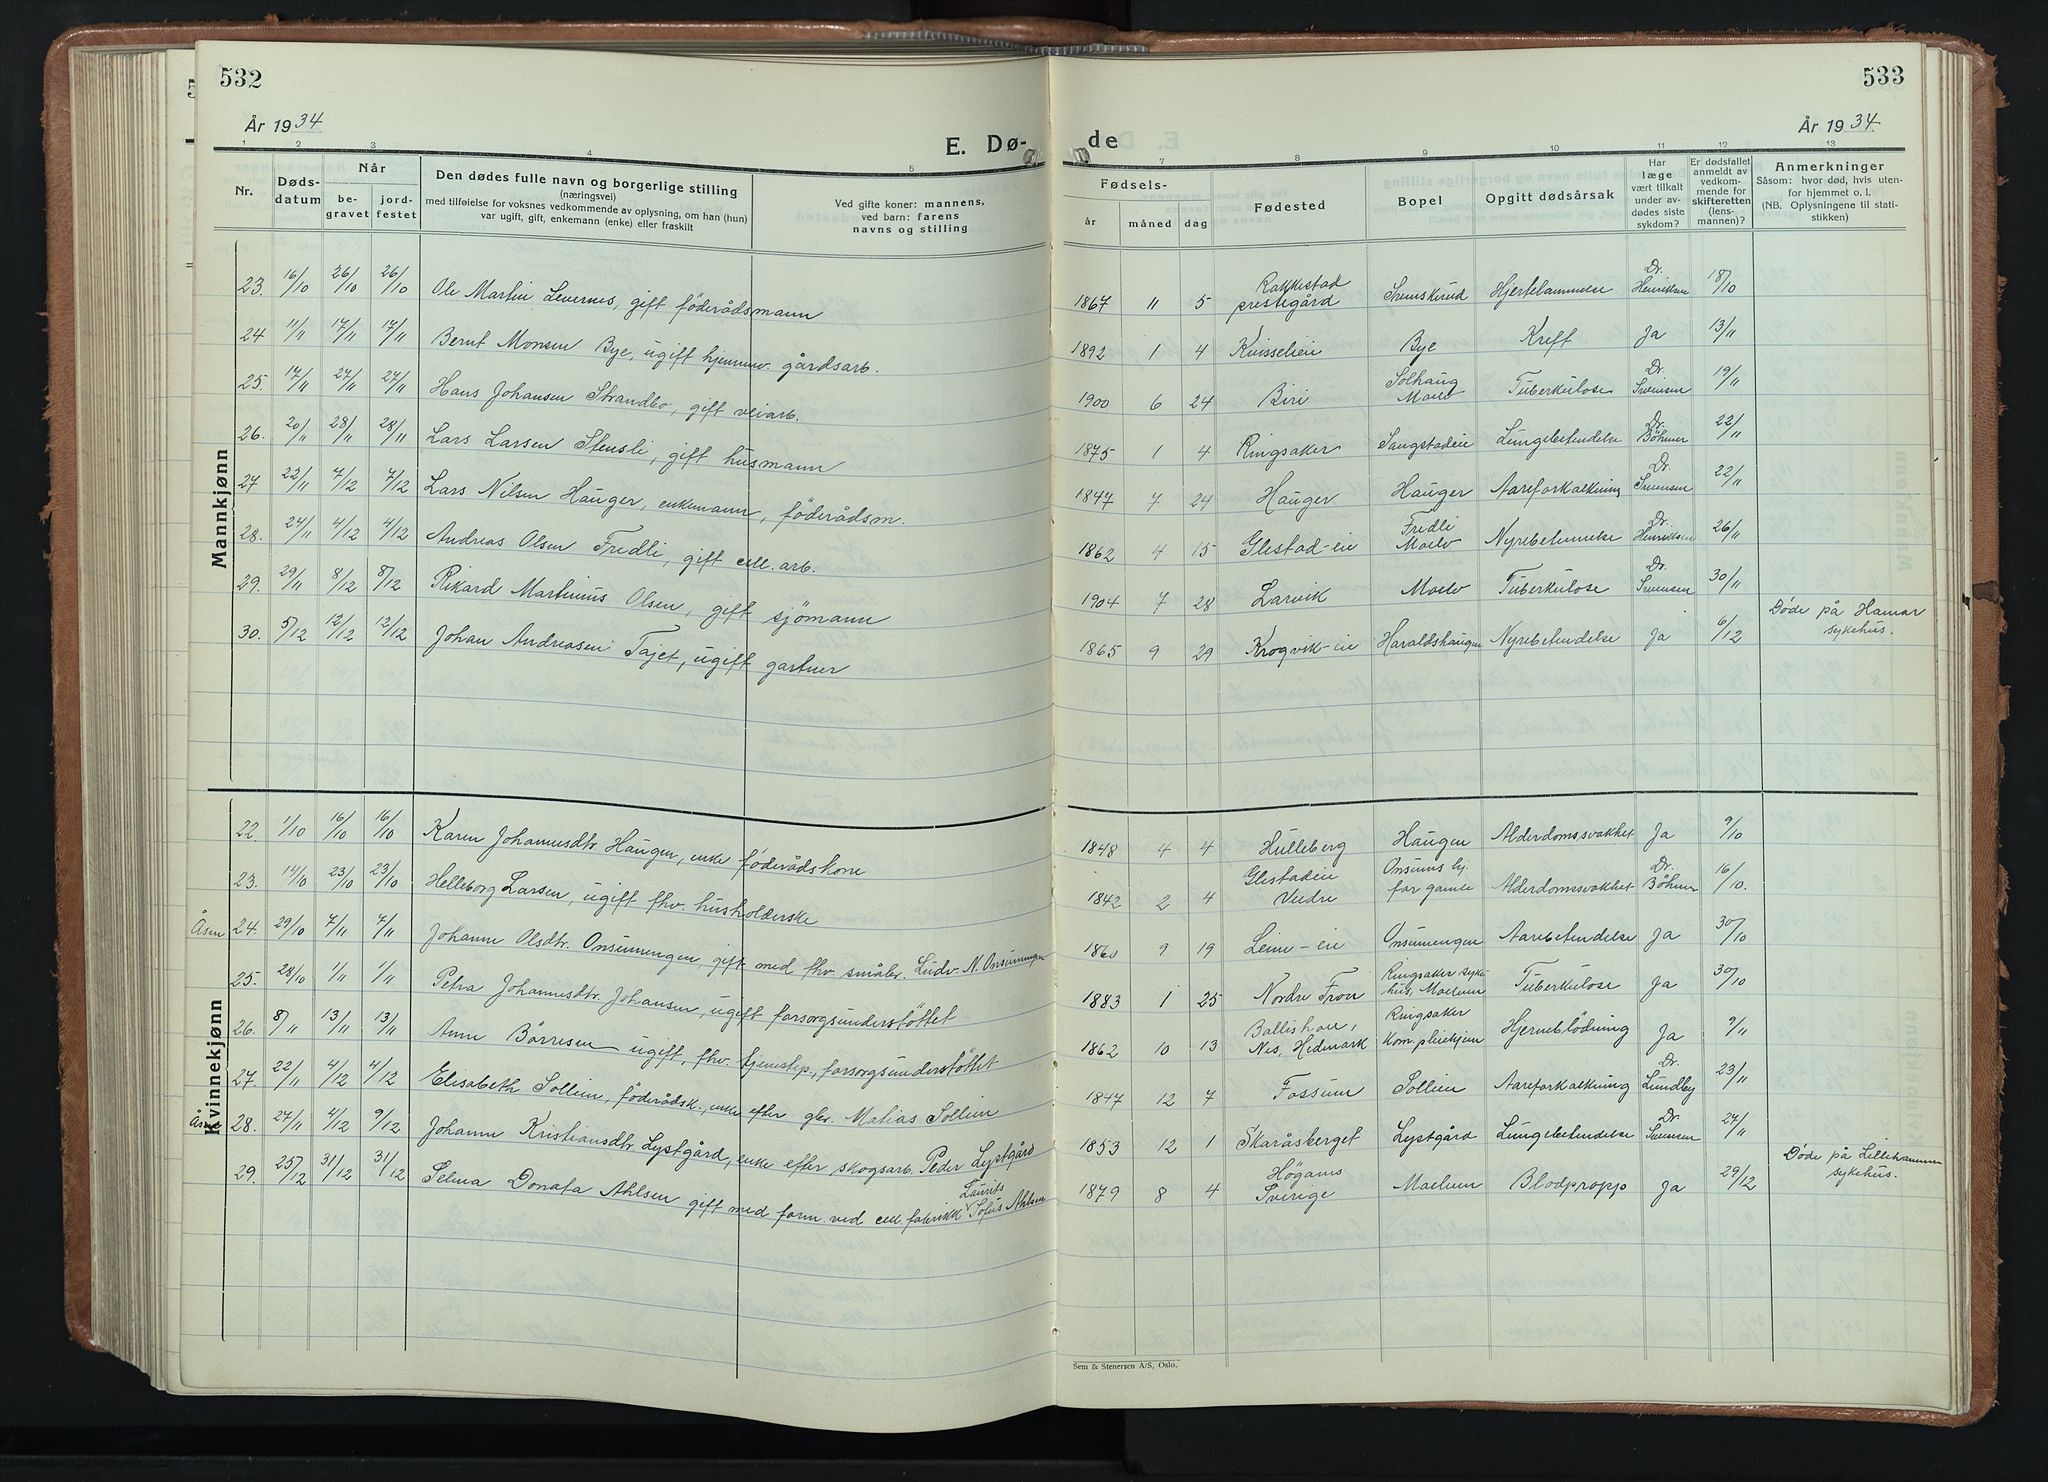 532
År 1934
E. Dø-
1 2 3 4 5
Nr. Dødsdatum Når begravet jordfestet
Den dødes fulle navn og borgerlige stilling
(næringsvei)
med tilføielse for voksnes vedkommende av oplysning, om han (hun)
var ugift, gift, enkemann (enke) eller fraskilt
Ved gifte koner: mannens,
ved barn: farens
navns og stilling
Mannkjønn
23. 16/10 26/10 26/10 Ole Martin Levernes, gift føderådsmann
24 11/11 17/11 17/11 Bernt Monsen Bye, ugift hjemmev. gårdsarb.
25. 17/11 27/11 27/11 Hans Johansen Strandbo, gift veiarb.
26. 20/11 28/11 28/11 Lars Larsen Stensli, gift husmann
27 22/11 7/12 7/12 Lars Nilsen Hauger, enkemann, føderådsm.
28. 24/11 4/12 4/12 Andreas Olsen Fredli, gift cell. arb.
29. 29/11 8/12 8/12 Rikard Martinius Olsen, gift sjömann
30. 5/12 12/12 12/12 Johan Andreasen Tajet, ugift gartner
Kvinnekjønn
22. 1/10 16/10 16/10 Karen Johannesdtr. Haugen, enke føderådskone
23. 14/10 23/10 23/10 Helleborg Larsen, ugift fhv. husholderske
Åsen 24. 29/10 7/11 7/11 Johanne Olsdtr. Onsumengen, gift med fhv. småbr. Ludv. N. Onsumengen
25. 28/10 1/11 1/11 Petra Johannesdtr. Johansen, ugift forsorgsunderstöttet
26. 8/11 13/11 13/11 Anne Börresen ugift, fhv. tjenestep., forsorgsunderstöttet
27. 22/11 4/12 4/12 Elisabeth Sollien, føderådsk., enke efter gbr. Matias Sollien
Åsen 28. 27/11 4/12 9/12 Johanne Kristiansdtr. Lystgård, enke efter skogsarb. Peder Lystgård
29. 25/12 31/12 31/12 Selma Donata Ahlsen gift med form. ved cell. fabrikk Laurits Sofus Ahlsen
533
År 1934
de
7 8 9 10 11 12 13
Fødsels- år måned dag
Fødested
Bopel
Opgitt dødsårsak
Har læge vært tilkalt under avdødes siste sykdom?
Er dødsfallet anmeldt av vedkommende for skifteretten (lensmannen)?
Anmerkninger
Såsom: hvor død, hvis utenfor hjemmet o. l.
(NB. Oplysningene til statistikken)
1867 11 5 Rakkestad prestegård Svenskerud Hjertelammelse Dr. Henriksen 18/10
1892 1 4 Kvisleeie Bye Kreft Ja 13/11
1900 6 24 Biri Solhaug Moelv Tuberkulose Dr. Svensen 19/11
1875 1 4 Ringsaker Saugstadeie Lungebetendelse Dr. Böhmer 22/11
1847 7 24 Hauger Hauger Aareforkalkning Dr. Svensen 22/11
1862 4 15 Glestad-eie Fredli Moelv Nyrebetennelse Dr. Henriksen 26/11
1904 7 28 Larvik Moelv Tuberkulose Dr. Svensen 30/11
1865 9 29 Krogvik-eie Haraldshaugen Nyrebetendelse Ja 6/12 Døde på Hamar sykehus.
1848 4 4 Hulleberg Haugen Alderdomssvakhet Ja 9/10
1842 2 4 Glestadeie Veldre Onsums hj. for gamle Alderdomssvakhet Dr. Böhmer 16/10.
1860 9 19 Leine-eie Onsumengen Aarebetendelse Ja 30/10
1883 1 25 Nordre Fron Ringsaker sykehus, Moelven Tuberkulose Ja 30/10
1862 10 13 Ballishou, Nes, Hedmark Ringsaker kom. pleiehjem Hjerneblödning Ja 9/11
1847 12 7 Fossum Sollien Aareforkalkning Dr. Lundby 23/11
1853 12 1 Skaråsberget Lystgård Lungebetendelse Dr. Svensen 27/11
1879 8 4 Högans Sverige Moelven Blodpropp Ja 29/12 Døde på Lillehammer sykehus.
Sem & Stenersen A/S, Oslo.